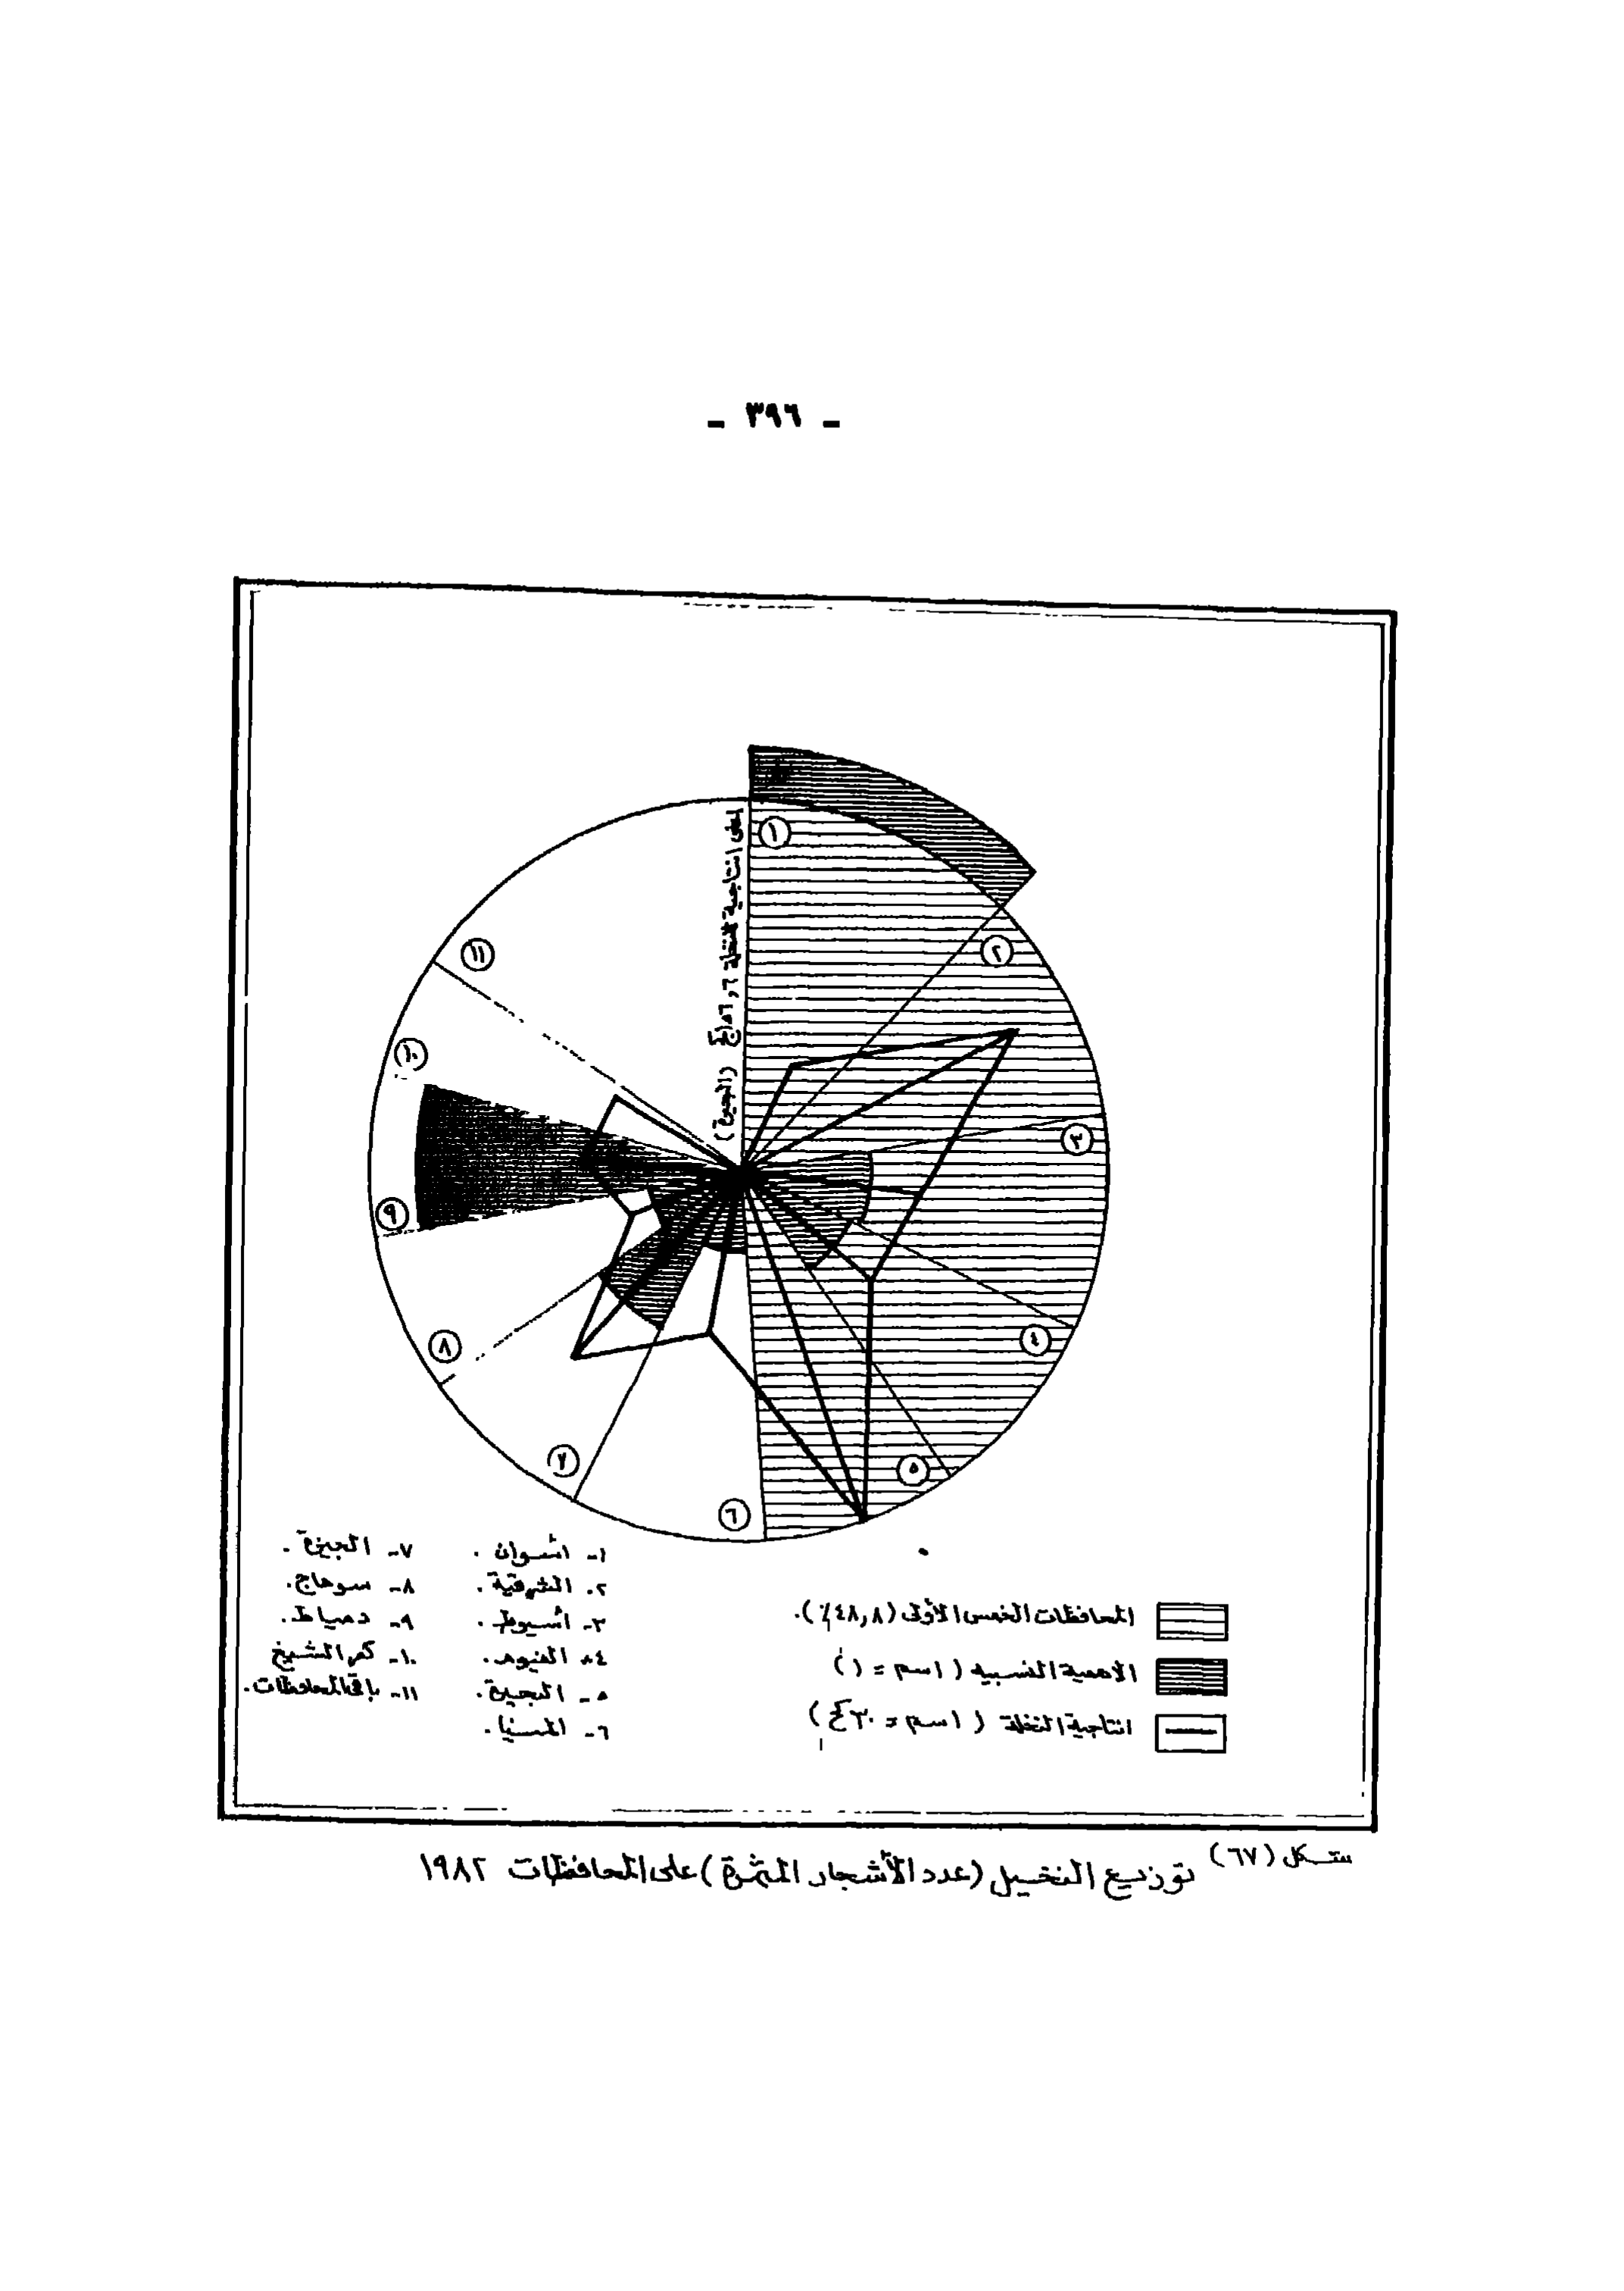 - ٣٩٦ -
١
٢
٣
٤
٥
٦
٧
٨
٩
١٠
١١
اعلى انتاجية للنخلة ١٥٦,٦ كج (الجيزة)
١- اسوان .
٢- الشرقية .
٣- اسيوط .
٤- الفيوم .
٥- البحيرة .
٦- المنيا .
٧- الجيزة .
٨- سوهاج .
٩- دمياط .
١٠- كفر الشيخ
١١- باقى المحافظات .
المحافظات الخمس الأولى (٤٨,٨٪) .
الاهمية النسبيه ( ١سم = ١ )
انتاجية النخلة ( ١سم = ٣٠ كج )
شكل (٦٧) توزيع النخيل (عدد الأشجار المثمرة) على المحافظات ١٩٨٢